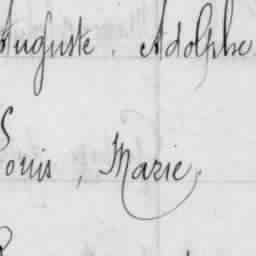 Auguste, Adolphe
Louis, Marie,